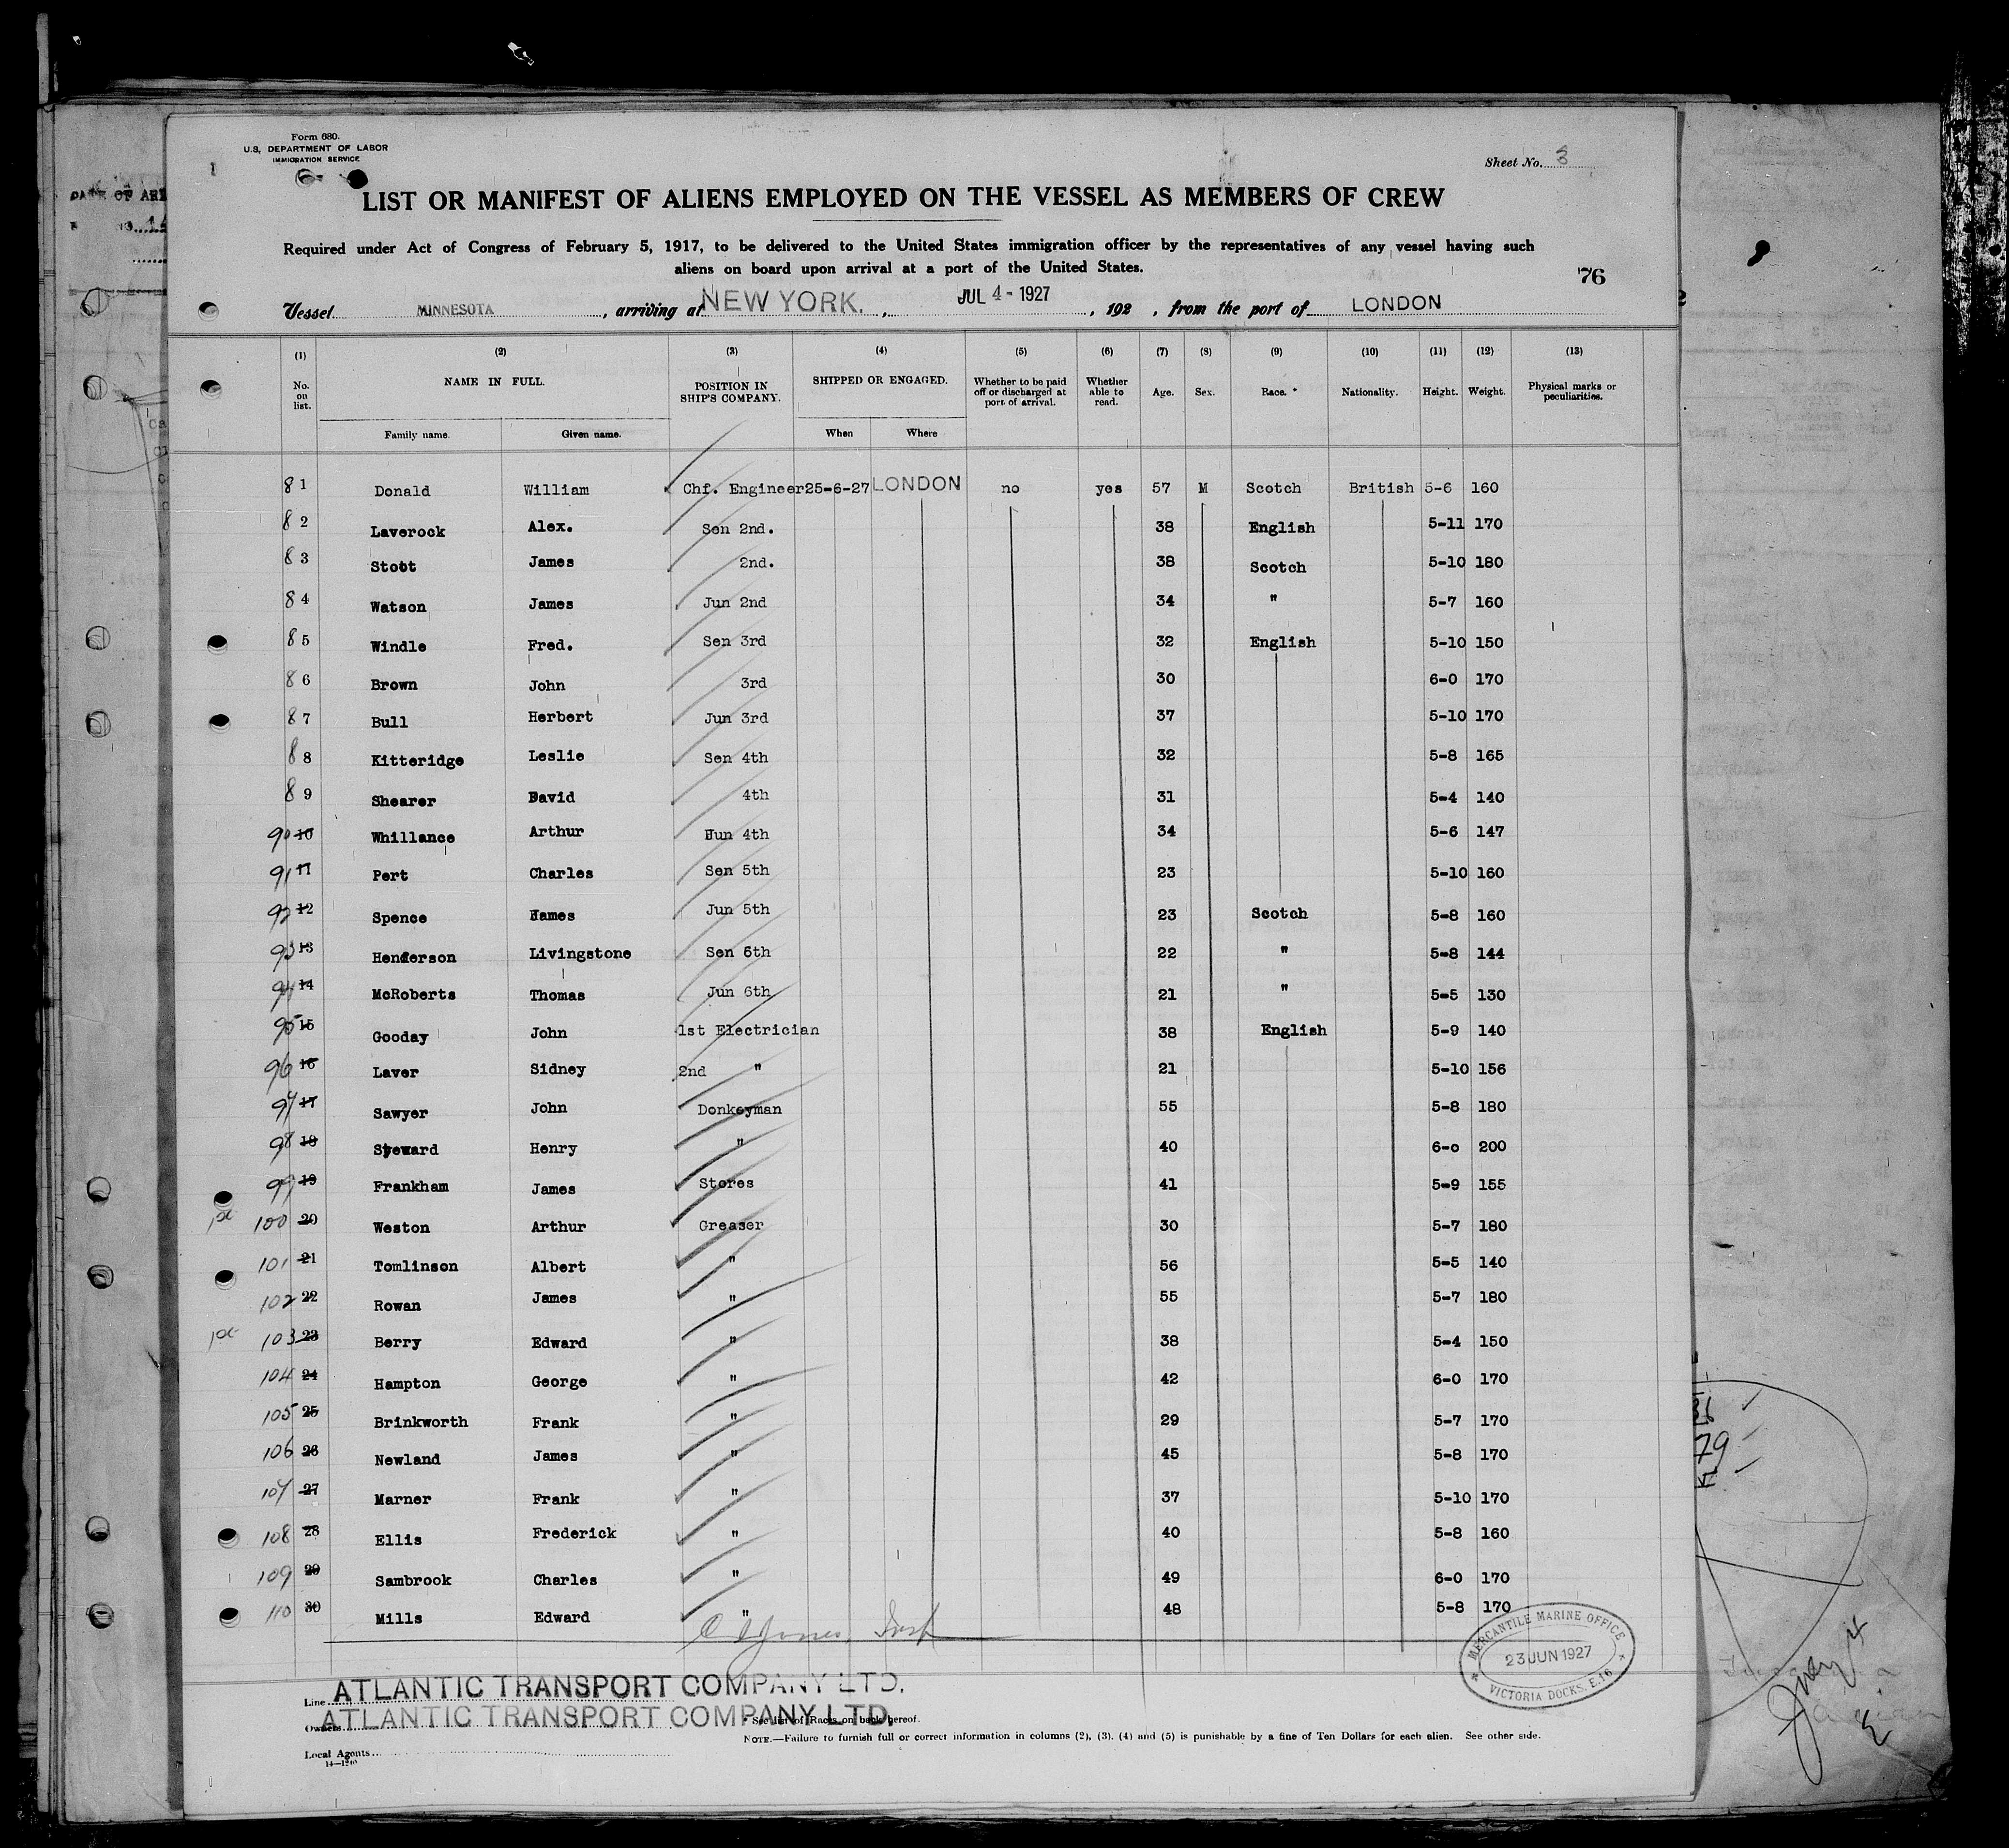 Form 680.
U.S. DEPARTMENT OF LABOR
IMMIGRATION SERVICE
Sheet No. 3
LIST OR MANIFEST OF ALIENS EMPLOYED ON THE VESSEL AS MEMBERS OF CREW
Required under Act of Congress of February 5, 1917, to be delivered to the United States immigration officer by the representatives of any vessel having such
aliens on board upon arrival at a port of the United States.
76
Vessel MINNESOTA, arriving at NEW YORK., JUL 4 - 1927, 192 , from the port of LONDON
(1) (2) (3) (4) (5) (6) (7) (8) (9) (10) (11) (12) (13)
No. on list. NAME IN FULL. POSITION IN SHIP'S COMPANY. SHIPPED OR ENGAGED. Whether to be paid off or discharged at port of arrival. Whether able to read. Age. Sex. Race. * Nationality. Height. Weight. Physical marks or peculiarities.
Family name. Given name. When Where
81 Donald William Chf. Engineer 25-6-27 LONDON no yes 57 M Scotch British 5-6 160
82 Laverock Alex. Sen 2nd. 38 English 5-11 170
83 Stott James 2nd. 38 Scotch 5-10 180
84 Watson James Jun 2nd 34 " 5-7 160
85 Windle Fred. Sen 3rd 32 English 5-10 150
86 Brown John 3rd 30 6-0 170
87 Bull Herbert Jun 3rd 37 5-10 170
88 Kitteridge Leslie Sen 4th 32 5-8 165
89 Shearer David 4th 31 5-4 140
90 10 Whillance Arthur Jun 4th 34 5-6 147
91 11 Pert Charles Sen 5th 23 5-10 160
92 12 Spence James Jun 5th 23 Scotch 5-8 160
93 13 Henderson Livingstone Sen 6th 22 " 5-8 144
94 14 McRoberts Thomas Jun 6th 21 " 5-5 130
95 15 Gooday John 1st Electrician 38 English 5-9 140
96 16 Laver Sidney 2nd " 21 5-10 156
97 17 Sawyer John Donkeyman 55 5-8 180
98 18 Steward Henry " 40 6-o 200
99 19 Frankham James Stores 41 5-9 155
100 20 Weston Arthur Greaser 30 5-7 180
101 21 Tomlinson Albert " 56 5-5 140
102 22 Rowan James " 55 5-7 180
103 23 Berry Edward " 38 5-4 150
104 24 Hampton George " 42 6-0 170
105 25 Brinkworth Frank " 29 5-7 170
106 26 Newland James " 45 5-8 170
107 27 Marner Frank " 37 5-10 170
108 28 Ellis Frederick " 40 5-8 160
109 29 Sambrook Charles " 49 6-0 170
110 30 Mills Edward " 48 5-8 170
MERCANTILE MARINE OFFICE
23 JUN 1927
VICTORIA DOCKS. E.16
Line ATLANTIC TRANSPORT COMPANY LTD.
Owners ATLANTIC TRANSPORT COMPANY LTD.
* See list of Races on back hereof.
Local Agents
NOTE.—Failure to furnish full or correct information in columns (2), (3), (4) and (5) is punishable by a fine of Ten Dollars for each alien. See other side.